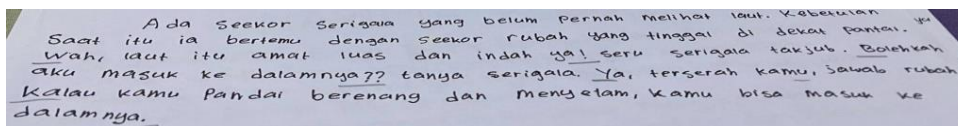 Ada seekor serigala yang belum pernah melihat laut. Kebetulan
Saat itu ia bertemu dengan seekor rubah yang tinggal di dekat pantai.
Wah, laut itu amat luas dan indah ya! seru serigala takjub. Bolehkah
aku masuk ke dalamnya?? tanya serigala. Ya, terserah kamu, jawab rubah
Kalau kamu Pandai berenang dan menyelam, kamu bisa masuk ke
dalamnya.